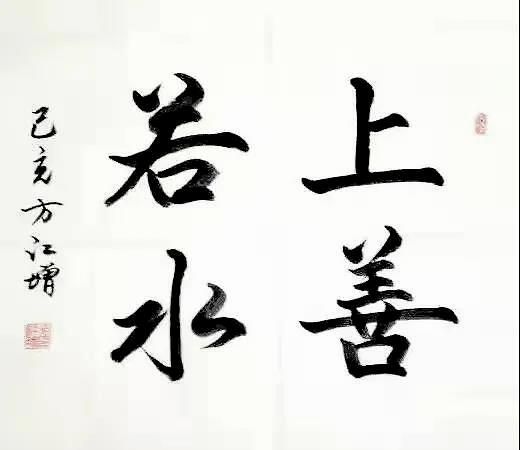 上善
若水
己亥方江增